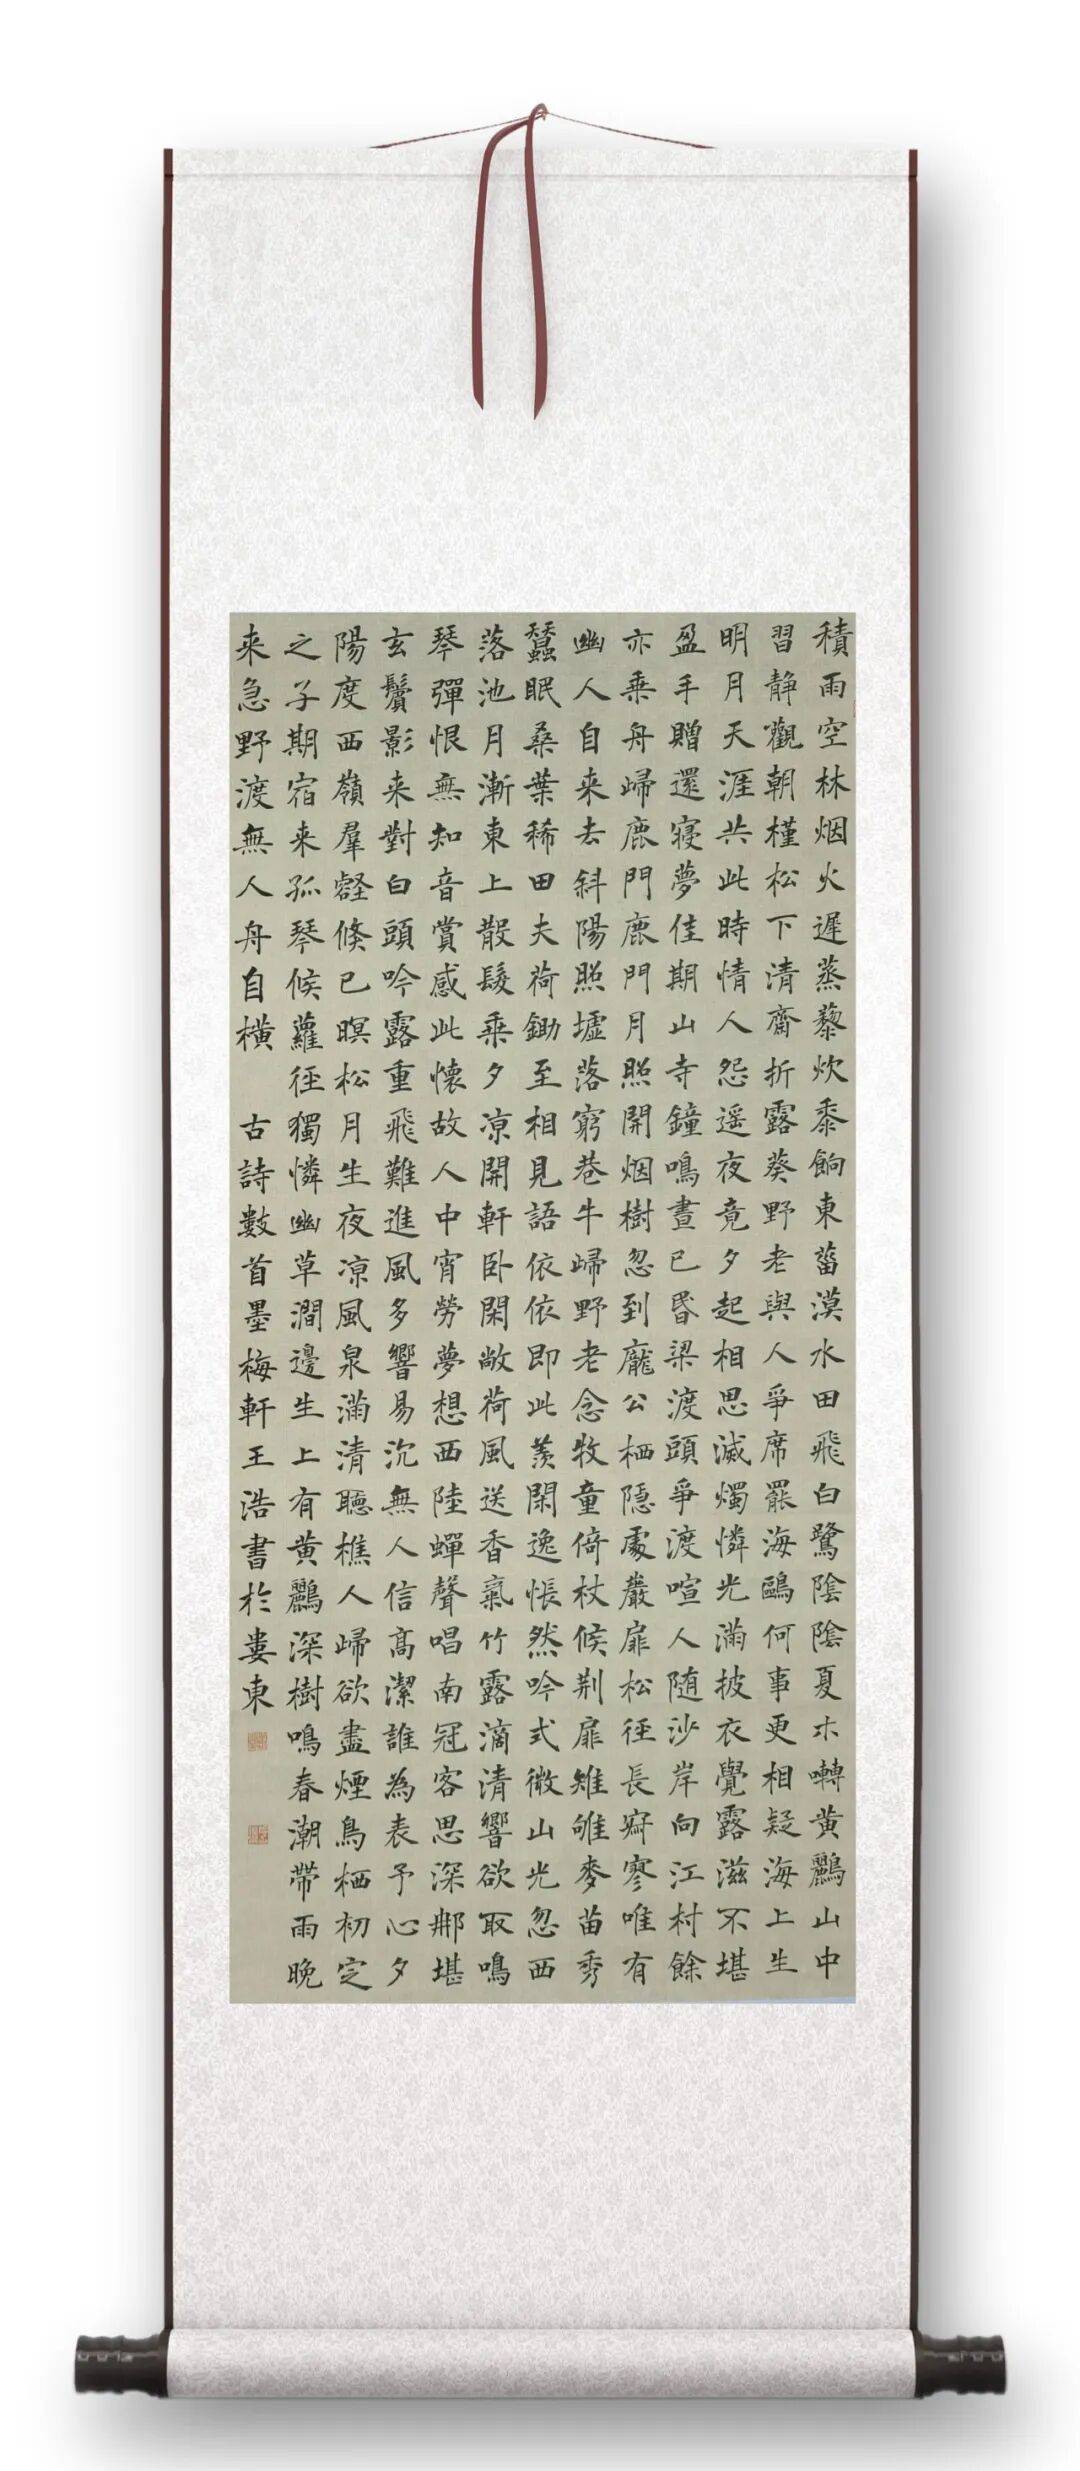 積雨空林烟火遲蒸藜炊黍餉東菑漠水田飛白鷺陰陰夏木囀黄鸝山中
習静觀朝槿松下清齋折露葵野老與人爭席罷海鷗何事更相疑海上生
明月天涯共此時情人怨遥夜竟夕起相思滅燭憐光滿披衣覺露滋不堪
盈手贈還寢夢佳期山寺鐘鳴晝已昏梁渡頭爭渡喧人随沙岸向江村餘
亦乗舟歸鹿門鹿門月照開烟樹忽到龐公栖隐處巖扉松徑長寂寥唯有
幽人自来去斜陽照墟落窮巷牛歸野老念牧童倚杖候荆扉雉雊麥苗秀
蠶眠桑葉稀田夫荷鋤至相見語依依即此羨閑逸悵然吟式微山光忽西
落池月漸東上散髮乗夕凉開軒卧閑敞荷風送香氣竹露滴清響欲取鳴
琴彈恨無知音賞感此懷故人中宵勞夢想西陸蟬聲唱南冠客思深那堪
玄鬢影来對白頭吟露重飛難進風多響易沉無人信高潔誰為表予心夕
陽度西嶺羣壑倏已暝松月生夜凉風泉滿清聽樵人歸欲盡煙鳥栖初定
之子期宿来孤琴候蘿徑獨憐幽草澗邊生上有黄鸝深樹鳴春潮帶雨晚
来急野渡無人舟自横 古詩數首墨梅軒王浩書於婁東